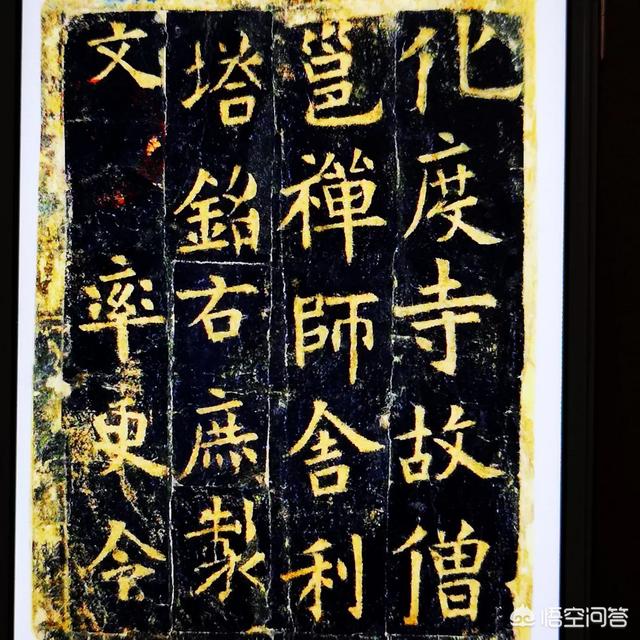 化度寺故僧
邕禪師舍利
塔銘右庶製
文 率更令
悟空问答